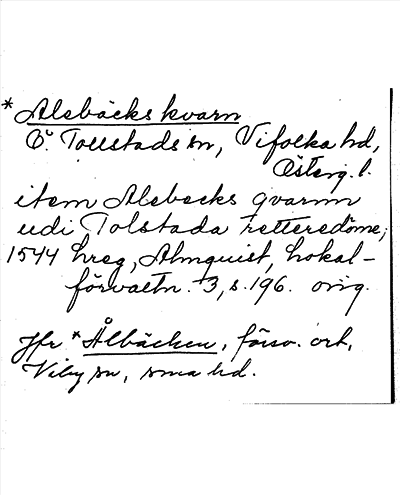 * Alebäcks kvarn
Ö. Tollstads sn, Vifolka hd,
Österg. l.
item Alebecks qvarnn
udi Tolstada retteredöme;
1544 hreg, Almquist, Lokal-
förvaltn. 3, s. 196. orig.
Jfr * Ålbäcken, försv. ort,
Viby sn, sma hd.